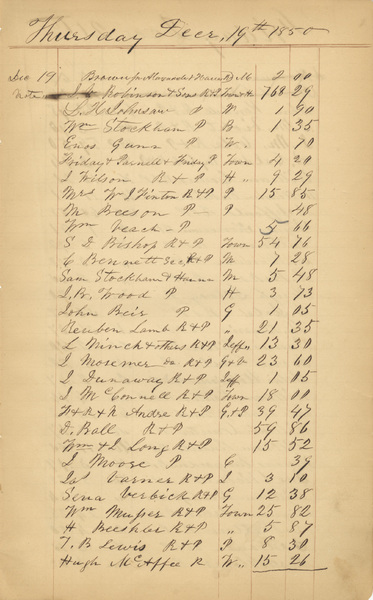 Thursday Decr, 19th 1850
Dec 19 Brown for D M 2 00
Note Robinson & Sons R & P Town 768 29
L. H. Johnson P P 1 90
Wm Stockham P B 1 35
Enos Gunn P W. 70
Friday & Parnell & Friday P Town 4 20
J Wilson R & P H " 9 29
Mrs W S Vinton R & P P 15 85
M Beeson P P 48
Wm Veach P 5 66
S D Bishop R & P Town 54 76
C Bennett Sec R & P M 1 28
Sam Stockham & Hanna M 5 48
J. W. Wood P H 3 73
John Beir P G 1 05
Reuben Lamb R & P " 21 35
L Ninch & others R & P Jeffn 13 30
J Mosemer R & P G & V 23 60
J Dunaway R & P Jeff 1 05
J McConnell R & P Town 18 00
W & R & N Andre R & P G & P 39 47
D. Ball R & P 59 86
Wm & J Long R & P 15 52
J Moose P C 39
Jas Varner R & P J 3 10
Sena Verbick R & P G 12 38
Wm Musser R & P Town 25 82
H Beeshlar R & P " 5 87
T. B Lewis R & P P 8 30
Hugh McAffee R W " 15 26